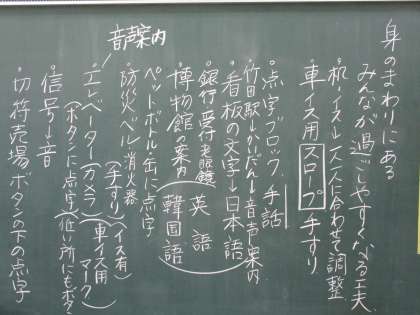 身のまわりにある
みんなが過ごしやすくなる工夫
・机・イス→一人一人に合わせて調整
・車イス用スロープ 手すり
・点字ブロック 手話
・竹田駅→かいだん→音声案内
・看板の文字→日本語
英語
韓国語
・銀行受付老眼鏡
・博物館→案内
・ペットボトル・缶に点字
・防災ベル 消火器
音声案内
・エレベーター(カメラ)(手すり)(イス有)
(ボタンに点字)(車イス用マーク)(低い所にもボタン)
・信号→音
・切符売場ボタンの下の点字